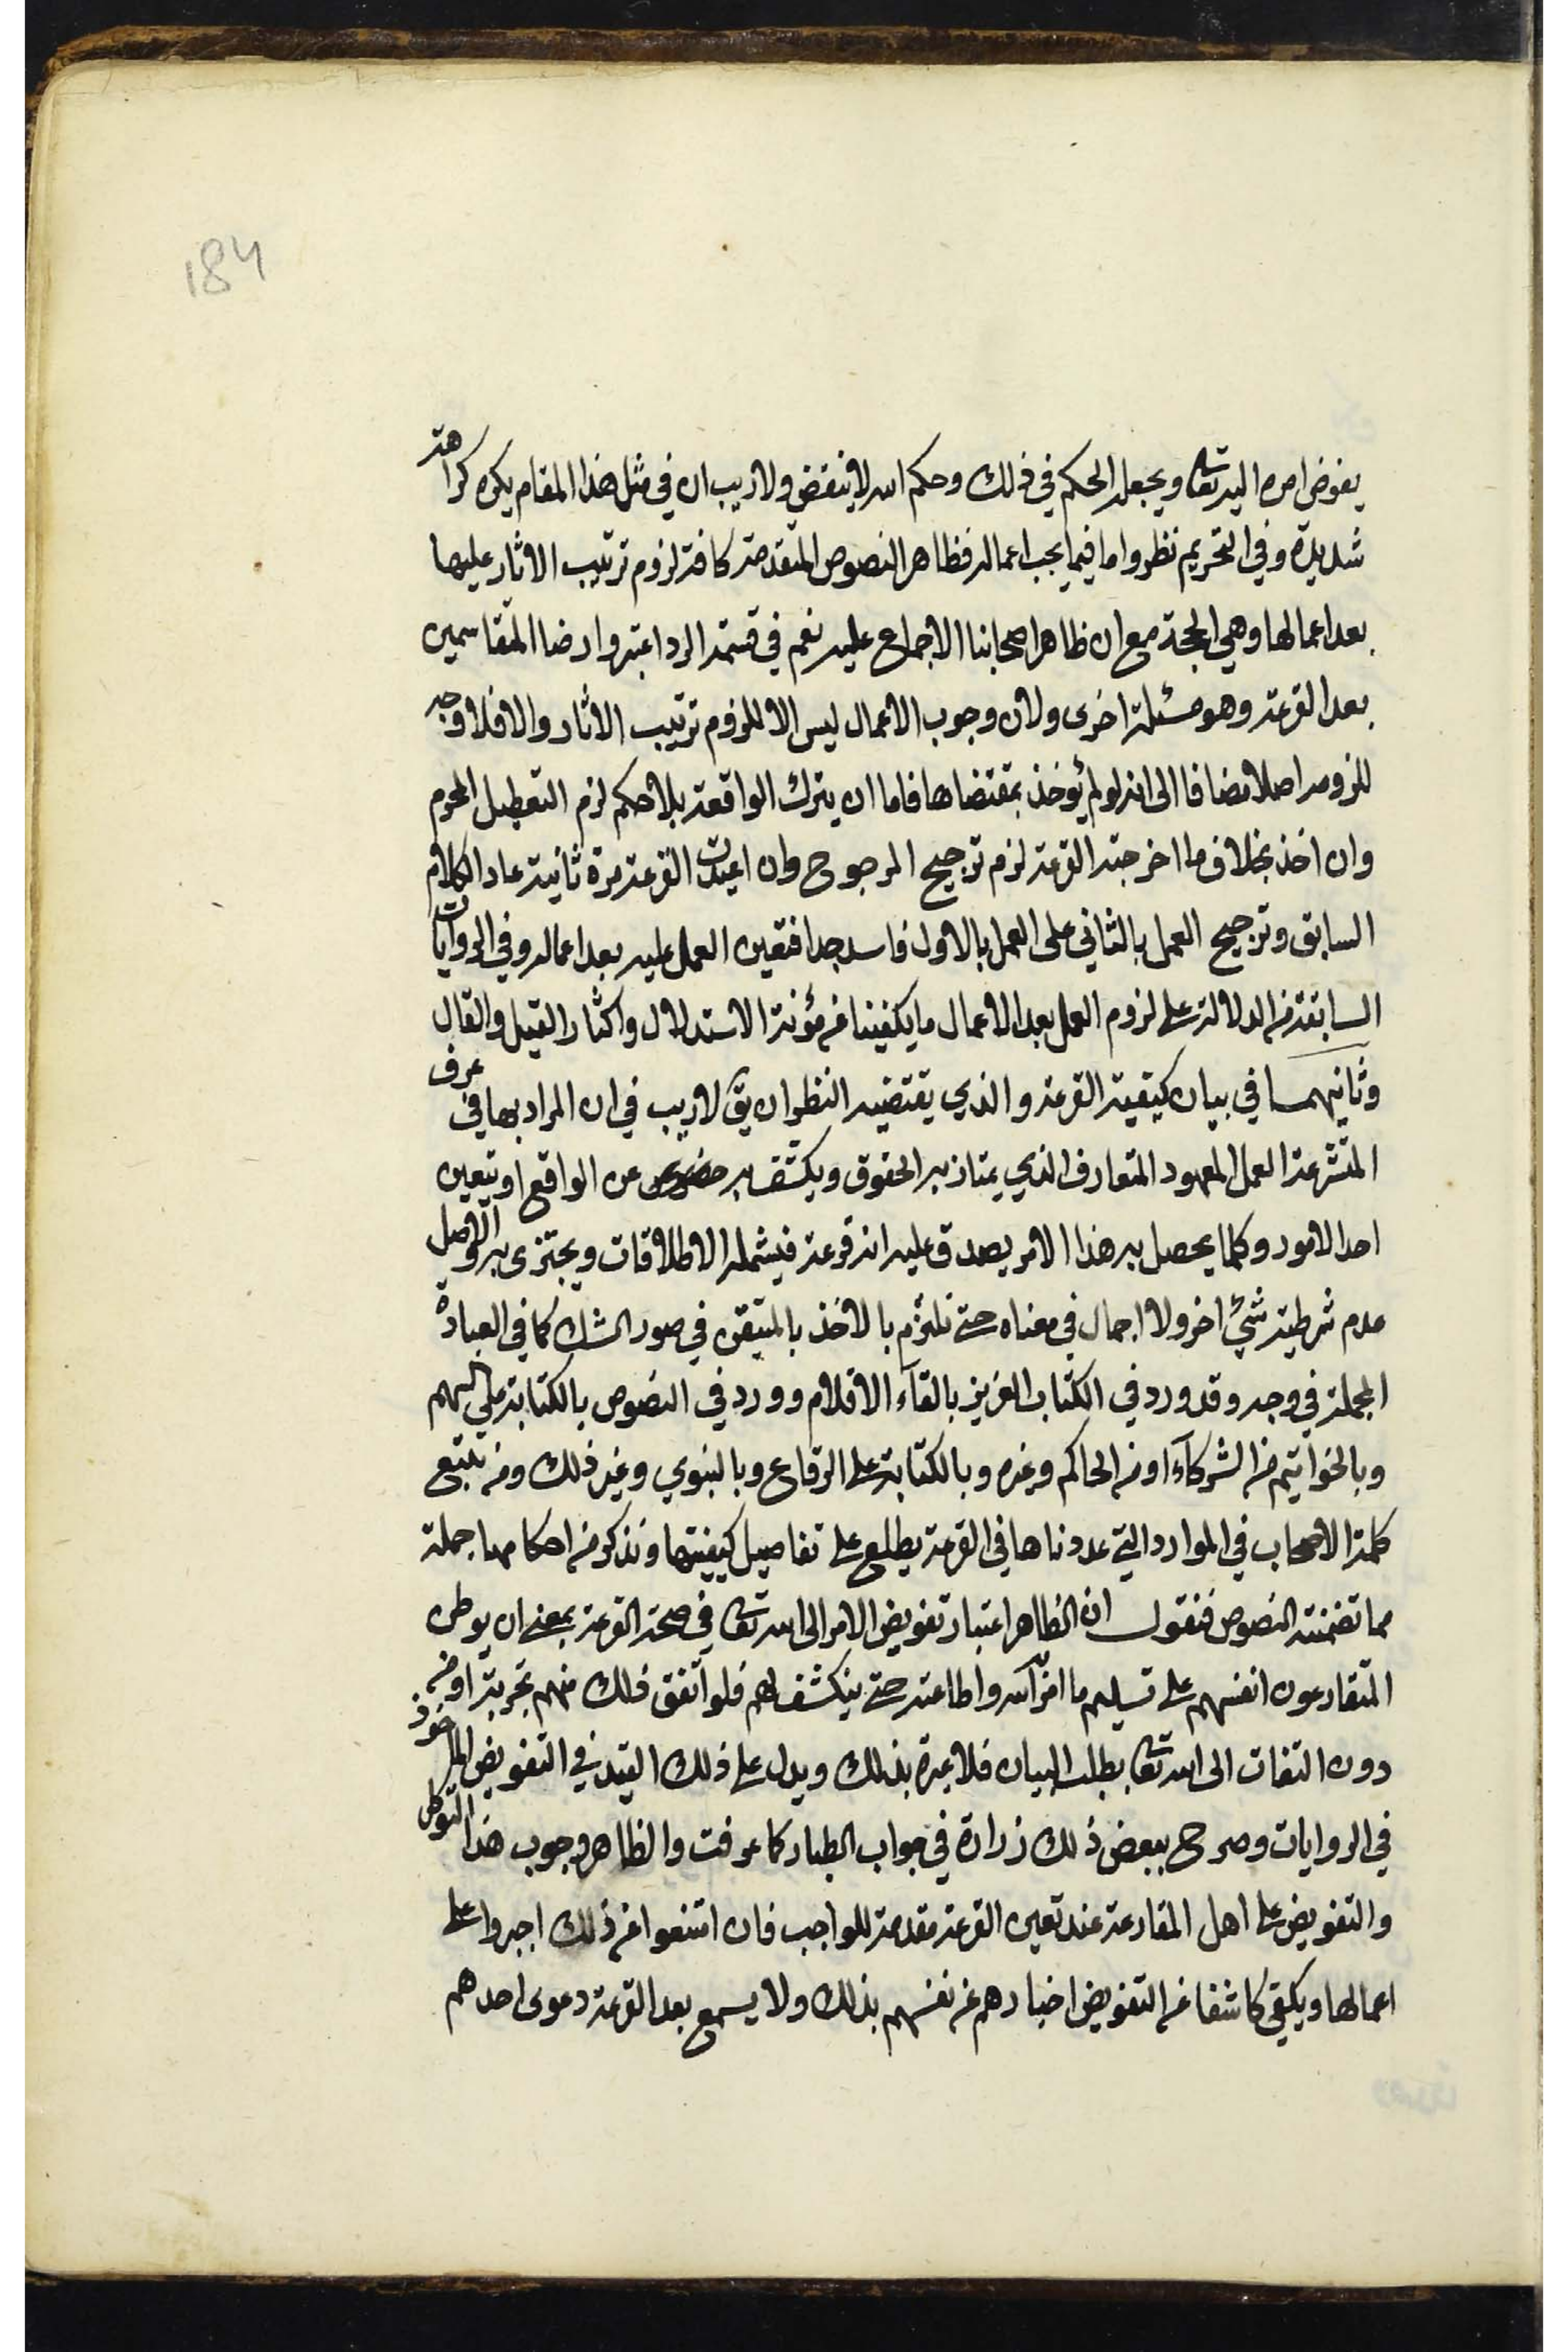 184
يفوض امره اليه تعا ويجعل الحكم في ذلك وحكم الله لا ينقض ولا ريب ان في مثل هذا المقام يكره كراهة
شديدة وفي التحريم نظر واما فيما يجب اعماله فظاهر النصوص المتقدمة كافة لزوم ترتيب الاثار عليها
بعد اعمالها وهي الحجة مع ان ظاهر اصحابنا الاجماع عليه نعم في قسمة الرد اعتبروا رضا المتقاسمين
بعد القرعة وهو مسئلة اخرى ولان وجوب الاعمال ليس الا للزوم ترتيب الاثار والا فلا وجه
للزومه اصلا مضافا الى انه لو لم يؤخذ بمقتضاها فاما ان يترك الواقعة بلا حكم لزم التعطيل المحرم
وان اخذ بخلاف ما اخرجته القرعة لزم ترجيح المرجوح وان اعيدت القرعة مرة ثانية عاد الكلام
السابق وترجيح العمل بالثاني على العمل بالاول فاسد جدا فتعين العمل عليه بعد اعماله وفي الروايات
السابقة من الدلالة على لزوم العمل بعد الاعمال ما يكفينا عن مؤنة الاستدلال واكثار القيل والقال
وثانيهما في بيان كيفية القرعة والذي يقتضيه النظر ان يق لا ريب في ان المراد بها في عرف
المتشرعة العمل المعهود المتعارف الذي يمتاز به الحقوق ويكشف به عن الواقع او تعين
احد الامور وكلما يحصل به هذا الامر يصدق عليه انه قرعة فيشمله الاطلاقات ويجتزى به والاصل
عدم شرطية شئ اخر ولا اجمال في معناه حتى نلتزم بالاخذ بالمتيقن في صور الشك كما في العبادة
المجملة في وجه وقد ورد في الكتاب العزيز بالقاء الاقلام وورد في النصوص بالكتابة على السهم
وبالخواتيم من الشركاء او من الحاكم وغيره وبالكتابة على الرقاع وبالنوي وغير ذلك ومن تتبع
كلمة الاصحاب في الموارد التي عددناها في القرعة يطلع على تفاصيل كيفيتها ونذكر من احكامها جملة
مما تضمنته النصوص فنقول ان الظاهر اعتبار تفويض الامر الى الله تعا في صحة القرعة بمعنى ان يوطن
المتقارعون انفسهم على تسليم ما امر الله واطاعته حتى ينكشف لهم فلو اتفق ذلك منهم تجربة او من
دون التفات الى الله تعا بطلب البيان فلا عبرة بذلك ويدل على ذلك القيد في التفويض الماخوذ
في الروايات وصرح ببعض ذلك زرارة في جواب الطيار كما عرفت والظاهر وجوب هذا التوطن
والتفويض على اهل المقارعة عند تعين القرعة مقدمة للواجب فان امتنعوا عن ذلك اجبروا على
اعمالها ويكفي كاشفا عن التفويض اخبارهم عن نفسهم بذلك ولا يسمع بعد القرعة دعوى احدهم